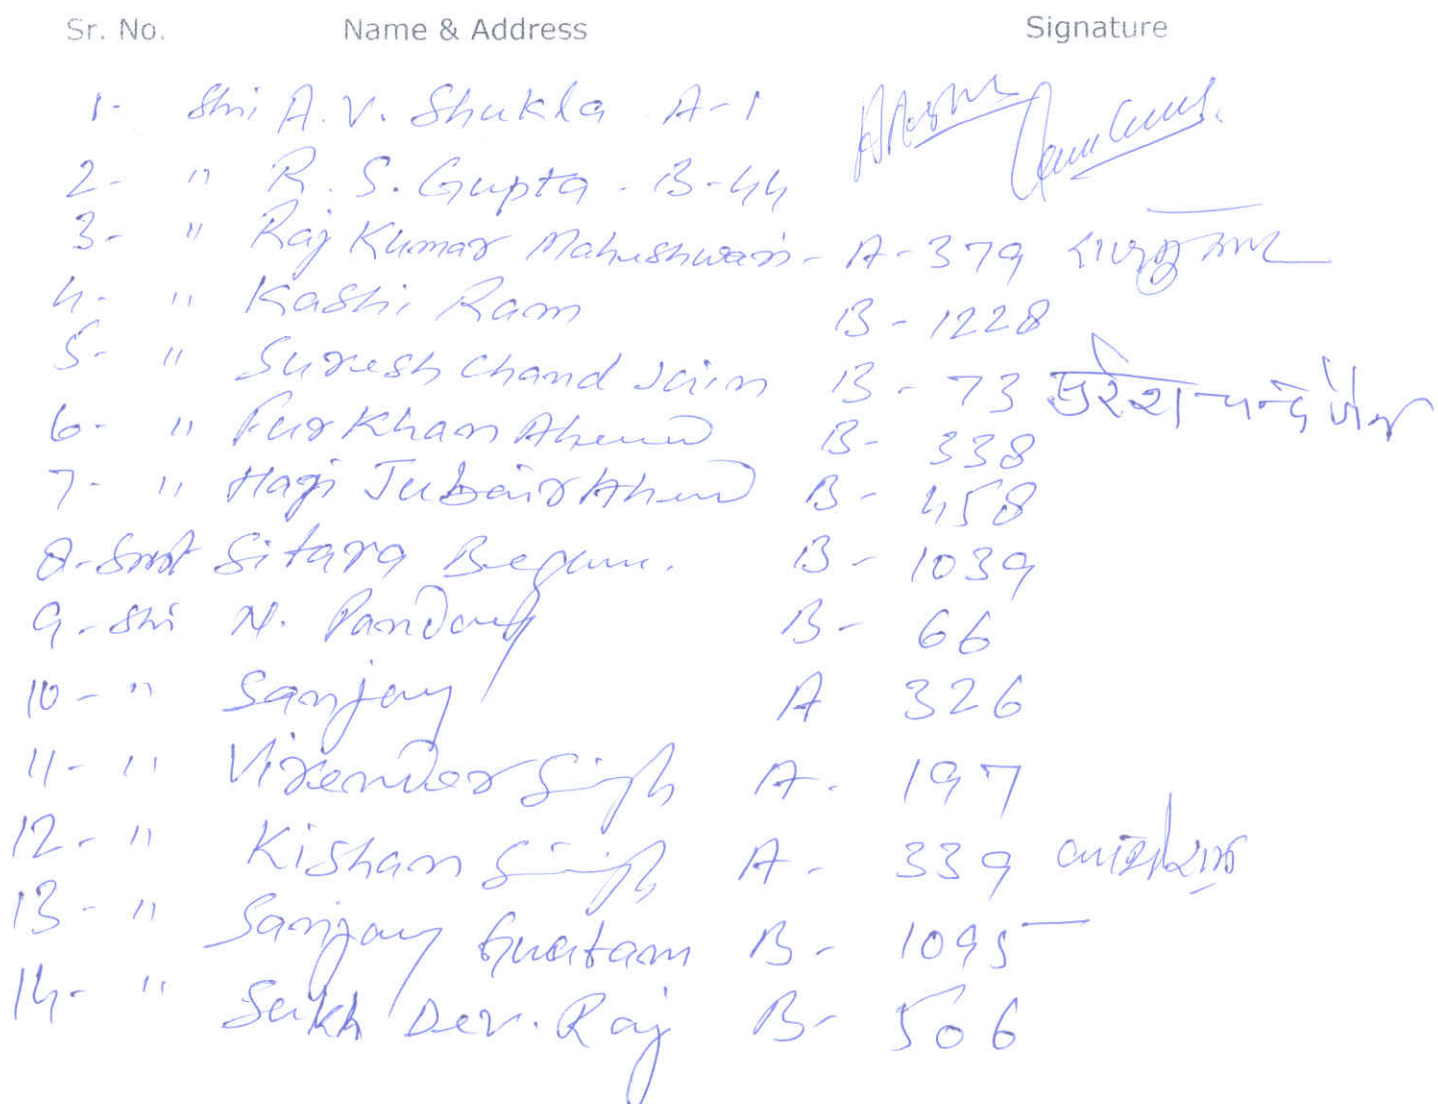 Sr. No. Name & Address Signature
1- Shri A.V. Shukla A-1
2- " R. S. Gupta - B-44
3- " Raj Kumar Maheshwari - A-379 राजकुमार
4- " Kashi Ram B-1228
5- " Suresh Chand Jain B-73 सुरेश चन्द जैन
6- " Furkhan Ahemd B-338
7- " Hagi Jubair Ahemd B-458
8- Smt Sitara Begum. B-1039
9- Shri N. Panday B-66
10- " Sanjay A 326
11- " Virender Singh A-197
12- " Kishan Singh A-339
13- " Sanjay Guatam B-1095
14- " Sukh Dev. Raj B-506